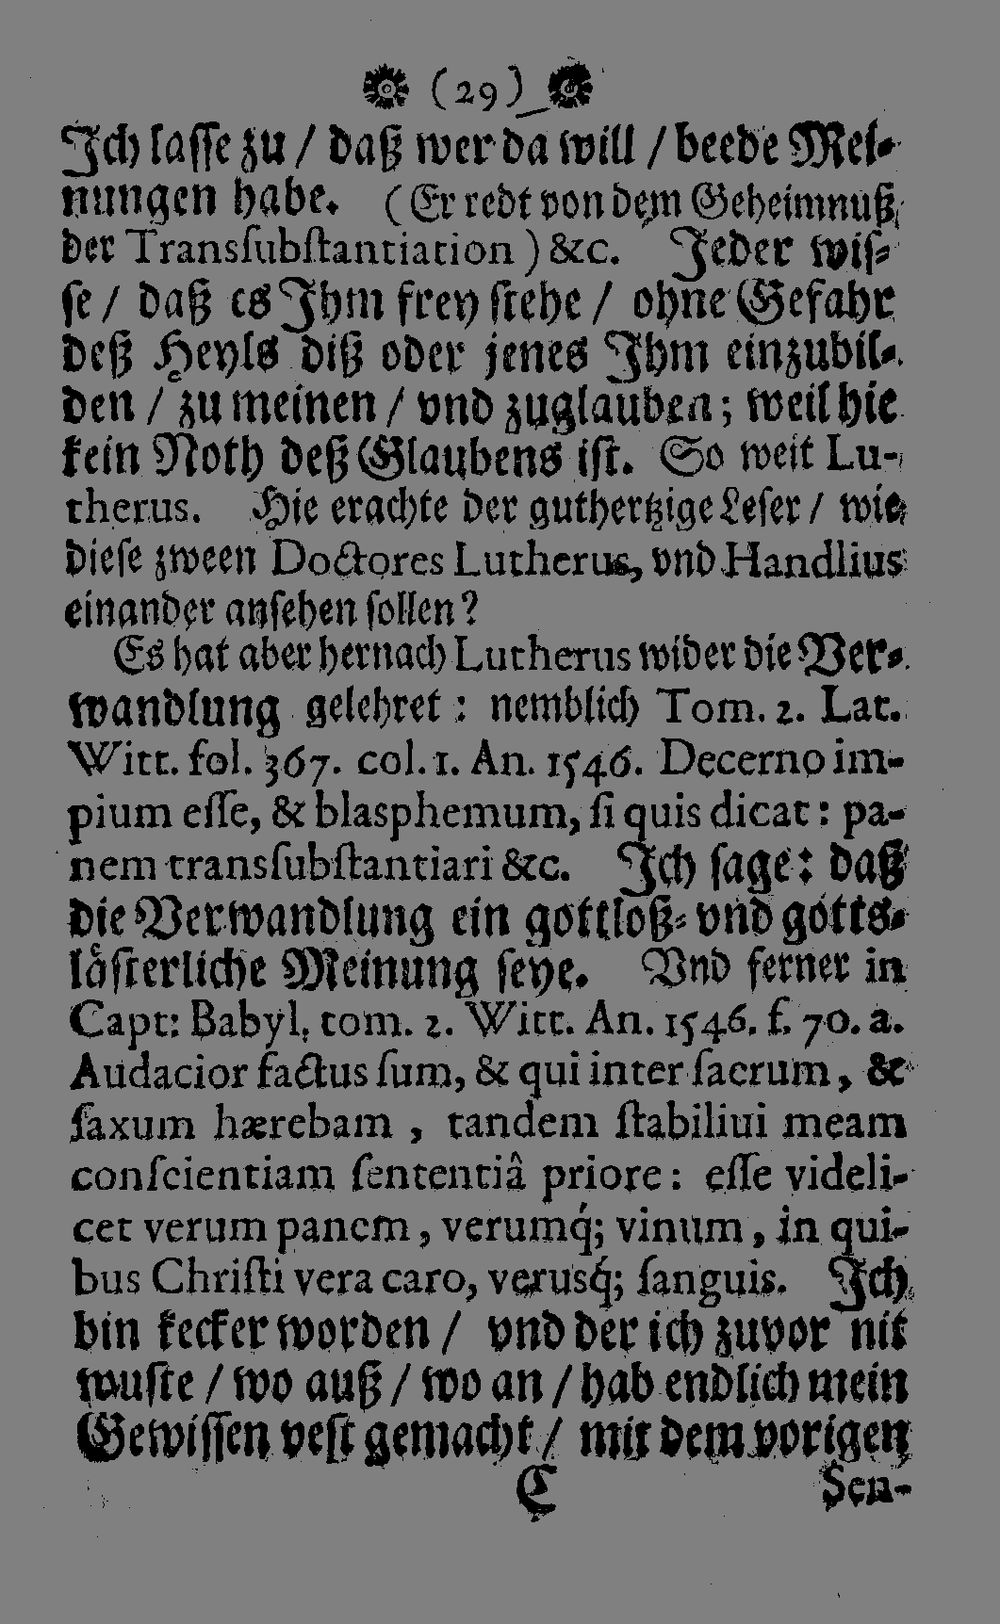 (29)
Ich lasse zu / daß wer da will / beede Mei-
nungen habe. (Er redt von dem Geheimnuß
der Transſubſtantiation) &c. Jeder wiſ-
ſe / daß es Ihm frey ſtehe / ohne Gefahr
deß Heyls diß oder jenes Ihm einzubil-
den / zu meinen / vnd zuglauben; weil hie
kein Noth deß Glaubens iſt. So weit Lu-
therus. Hie erachte der guthertzige Leſer / wie
dieſe zween Doctores Lutherus, vnd Handlius
einander anſehen ſollen?
Es hat aber hernach Lutherus wider die Ver-
wandlung gelehret: nemblich Tom. 2. Lat.
Witt. fol. 367. col. 1. An. 1546. Decerno im-
pium eſſe, & blasphemum, ſi quis dicat: pa-
nem transſubſtantiari &c. Ich ſage: daß
die Verwandlung ein gottloß- vnd gotts-
låſterliche Meinung ſeye. Vnd ferner in
Capt: Babyl. tom. 2. Witt. An. 1546. f. 70. a.
Audacior factus ſum, & qui inter ſacrum, &
ſaxum hærebam, tandem ſtabiliui meam
conſcientiam ſententiâ priore: eſſe videli-
cet verum panem, verumq́; vinum, in qui-
bus Chriſti vera caro, verusq́; ſanguis. Ich
bin kecker worden / vnd der ich zuvor nit
wuſte / wo auß / wo an / hab endlich mein
Gewiſſen veſt gemacht / mit dem vorigen
C Sen-